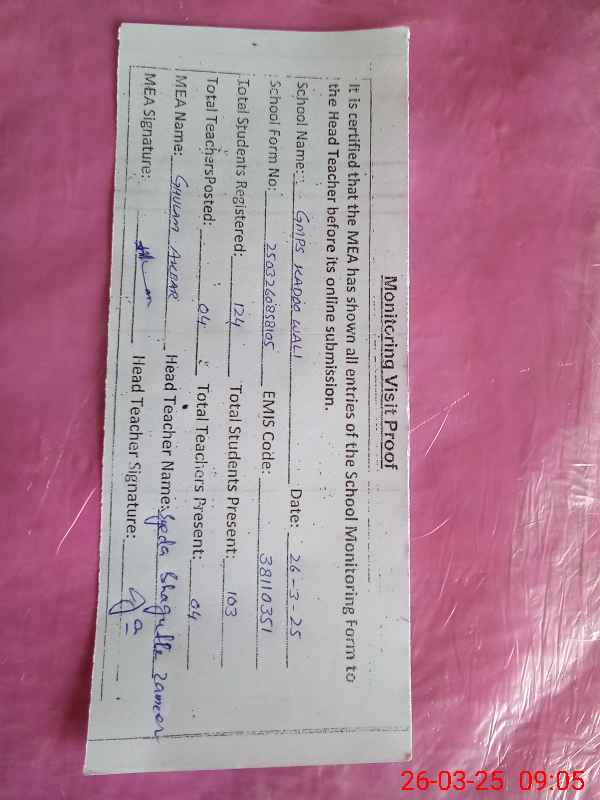 Monitoring Visit Proof
It is certified that the MEA has shown all entries of the School Monitoring Form to
the Head Teacher before its online submission.
School Name: GMPS KADOO WALI Date: 26-3-25
School Form No: 2503260858105 EMIS Code: 38110351
Total Students Registered: 124 Total Students Present: 103
Total TeachersPosted: 04 Total Teachers Present: 04
MEA Name: GHULAM AKBAR Head Teacher Name: Syeda Shagufta Zameer
MEA Signature: Head Teacher Signature:
26-03-25 09:05